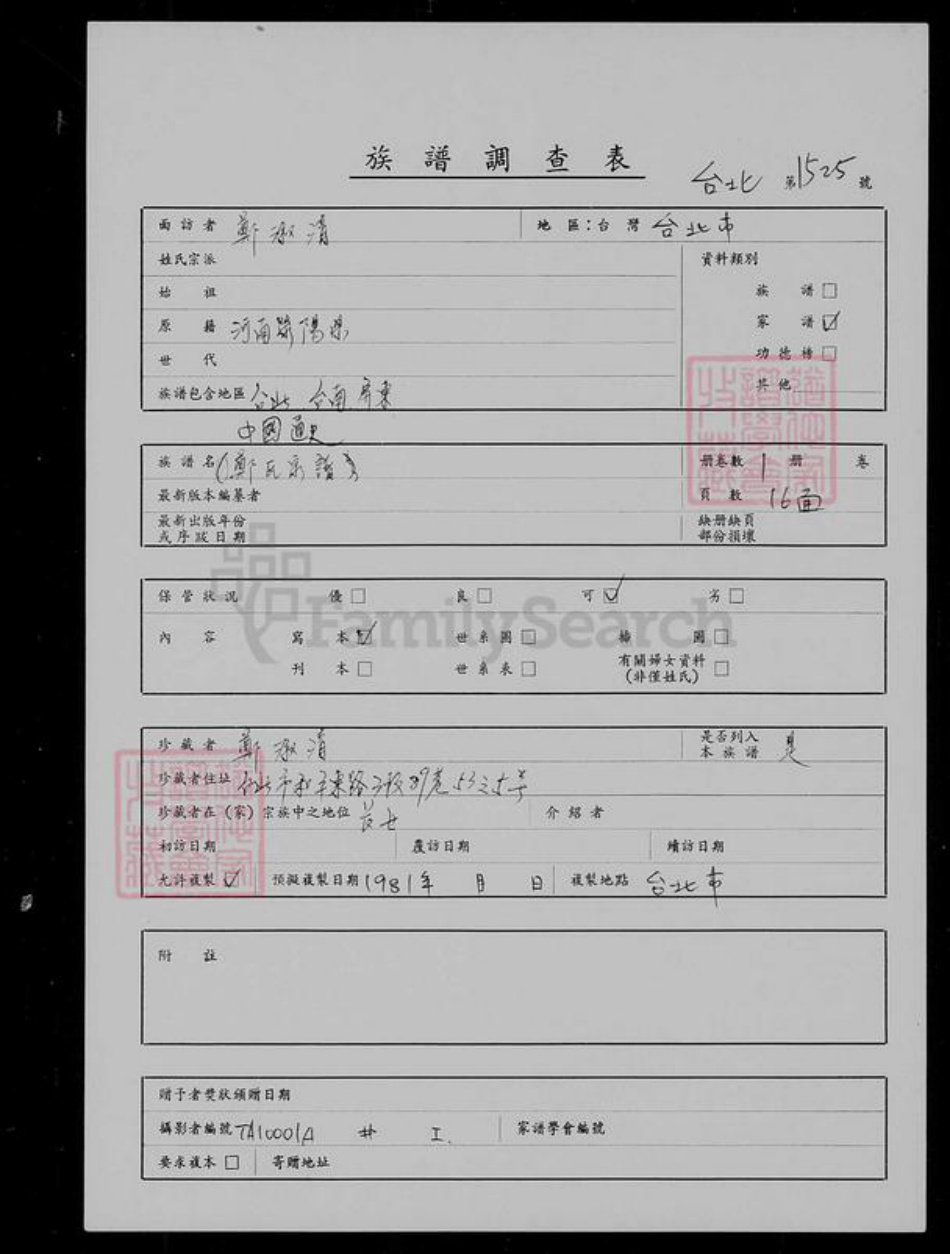 族譜調查表
台北 第1525號
面訪者 鄭淑清 地區:台灣 台北市
姓氏宗派 資料類別
始祖 族譜□
原籍 河南 陽県 家譜☑
世代 功德榜□
族譜包含地區 台北 台南 屏東 其他
中國通史
族譜名(鄭氏宗譜) 册卷數 1 册 卷
最新版本編纂者 頁數 16面
最新出版年份 缺册缺頁
或序跋日期 部份損壞
保管狀況 優□ 良□ 可☑ 劣□
內容 寫本☑ 世系圖□ 插圖□
刊本□ 世系表□ 有關婦女資料□
(非僅姓氏)
珍藏者 鄭淑清 是否列入 是
本族譜
珍藏者住址 台北市和平東路 段89巷53之5号
珍藏者在(家)宗族中之地位 長女 介紹者
初訪日期 覆訪日期 續訪日期
允許複製☑ 預擬複製日期 1981年 月 日 複製地點 台北市
附註
贈予者獎狀頒贈日期
攝影者編號 TA10001A # I. 家譜學會編號
要求複本□ 寄贈地址
FamilySearch